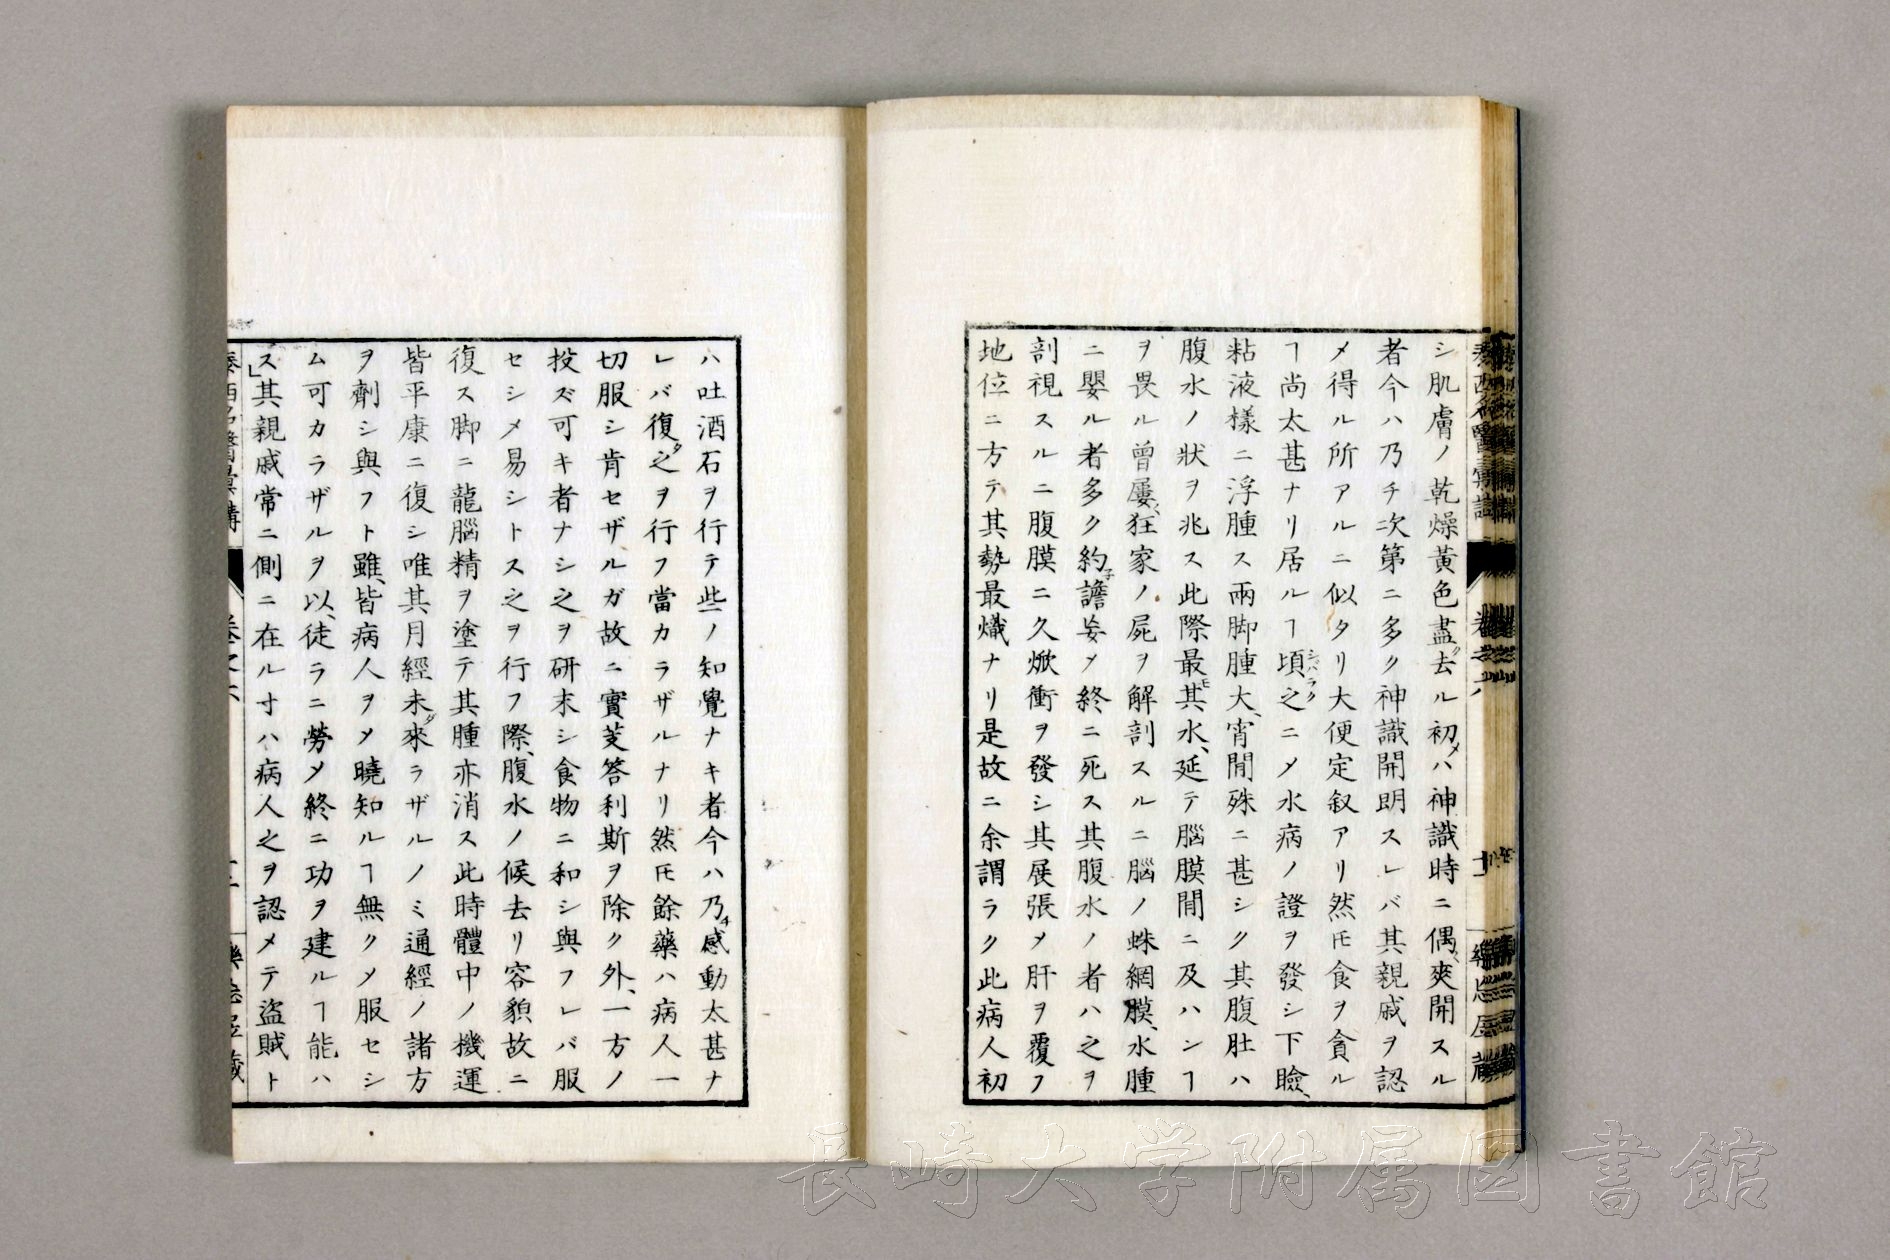 シ肌膚ノ乾燥黃色盡ク去ル初メハ神識時ニ偶〻爽開スル
者今ハ乃チ次第ニ多ク神識開朗スレバ其親戚ヲ認
メ得ル所アルニ似タリ大便定叙アリ然𪜈食ヲ貪ル
ヿ尚太甚ナリ居ルヿ頃之ニメ水病ノ證ヲ發シ下瞼、
粘液樣ニ浮腫ス兩脚腫大、宵間殊ニ甚シク其腹肚ハ
腹水ノ狀ヲ兆ス此際最モ其水、延テ腦膜間ニ及ハンヿ
ヲ畏ル曾屢〻狂家ノ屍ヲ解剖スルニ腦ノ蛛網膜、水腫
ニ嬰ル者多ク約子譫妄メ終ニ死ス其腹水ノ者ハ之ヲ
剖視スルニ腹膜ニ久焮衝ヲ發シ其展張メ肝ヲ覆フ
地位ニ方テ其勢最熾ナリ是故ニ余謂ラク此病人初
ハ吐酒石ヲ行テ些ノ知覺ナキ者今ハ乃チ感動太甚ナ
レバ復タ之ヲ行フ當カラザルナリ然𪜈餘藥ハ病人一
切服シ肯セザルガ故ニ實芰答利斯ヲ除ク外、一方ノ
投ズ可キ者ナシ之ヲ研末シ食物ニ和シ與フレバ服
セシメ易シトス之ヲ行フ際、腹水ノ候去リ容貌故ニ
復ス脚ニ龍腦精ヲ塗テ其腫亦消ス此時體中ノ機運
皆平康ニ復シ唯其月經未ダ來ラザルノミ通經ノ諸方
ヲ劑シ與フト雖、皆病人ヲメ曉知ルヿ無クメ服セシ
ム可カラザルヲ以、徒ラニ勞メ終ニ功ヲ建ルヿ能ハ
ス」其親戚常ニ側ニ在ル寸ハ病人之ヲ認メテ盜賊ト
長崎大学附属図書館